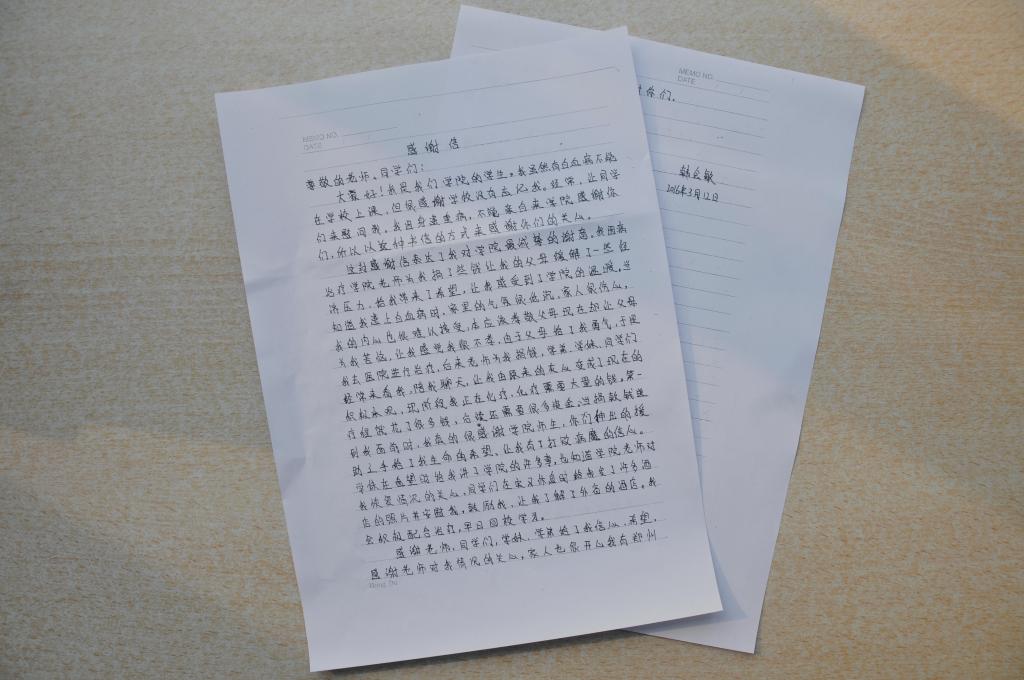 MEMO NO.
DATE
感谢信
尊敬的老师、同学们：
大家好！我是我们学院的学生。我虽然有白血病不能
在学校上课，但很感谢学校没有忘记我。经常，让同学
们来慰问我。我因身患重病，不能亲自来学院感谢你
们，所以以这种书信的方式来感谢你们的关心。
这封感谢信表达了我对学院最诚挚的谢意。我因病
治疗学院老师为我捐了些钱让我的父母缓解了一些经
济压力，给我带来了希望，让我感受到了学院的温暖。当
知道我患上白血病时，家里的气氛很低沉，家人很伤心，
我的内心也很难以接受，本应该孝敬父母现在却让父母
为我苦恼，让我感觉我很不孝。由于父母给了我勇气，于是
我去医院进行治疗，后来老师为我捐钱，学弟、学妹、同学们
经常来看我，陪我聊天，让我由原来的灰心变成了现在的
积极乐观，现阶段我正在化疗，化疗需要大量的钱。第一
疗程就花了很多钱，后续还需要很多资金，当捐款钱送
到我面前时，我真的很感谢学院师生，你们伸出的援
助之手给了我生命的希望、让我有了打败病魔的信心。
学妹在看望时给我讲了学院的许多事，也知道学院老师对
我恢复情况的关心，同学们在实习休息时给我发了许多酒
店的照片并安慰我，鼓励我，让我了解了外面的酒店。我
会积极配合治疗，早日回校学习。
感谢老师，同学们，学妹、学弟给了我信心，希望，
感谢老师对我情况的关心，家人也很开心我有郑州
MEMO NO.
DATE / /
你们。
2016年3月12日